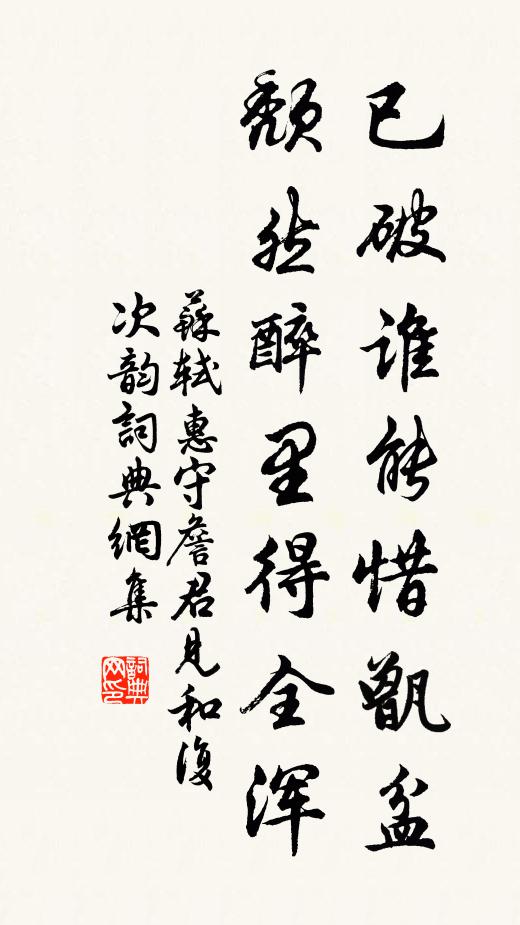 已破谁能惜甑盆
颓然醉里得全浑
蘇轼惠守詹君見和復
次韵詞典網集
詞典网印